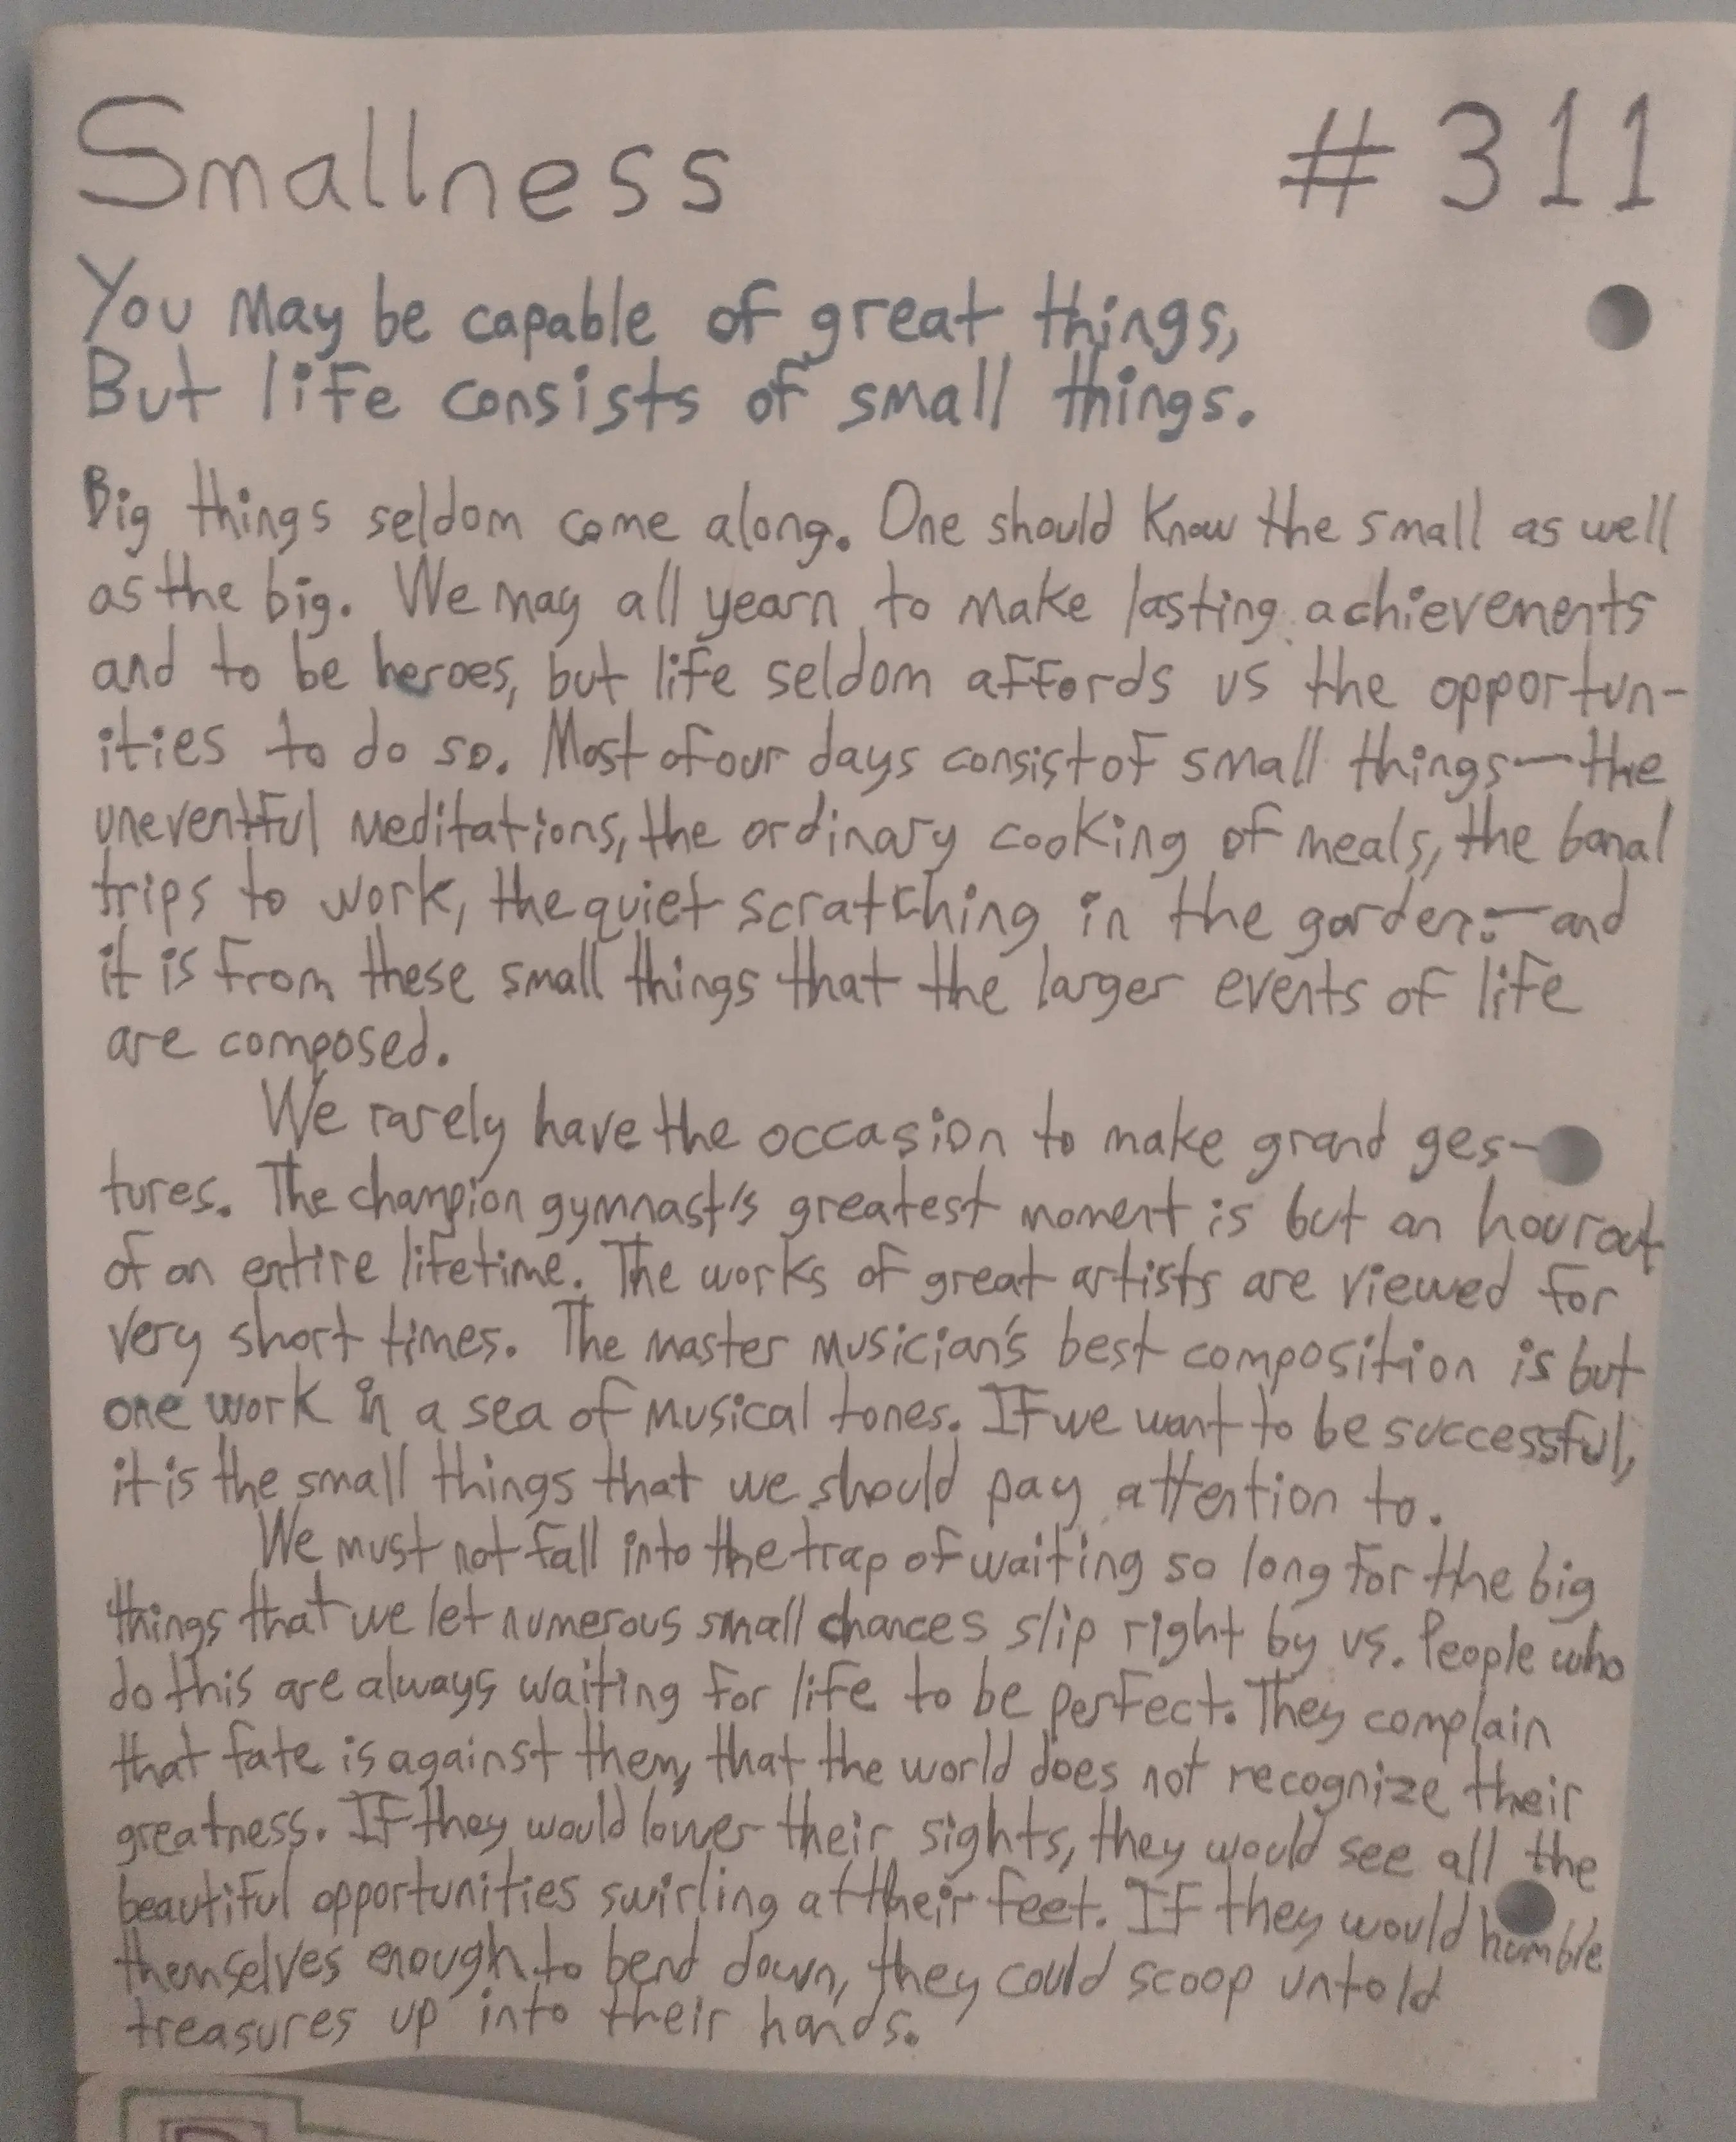 Smallness #311
You may be capable of great things,
But life consists of small things.
Big things seldom come along. One should know the small as well
as the big. We may all yearn to make lasting achievements
and to be heroes, but life seldom affords us the opportun-
ities to do so. Most of our days consist of small things—the
uneventful meditations, the ordinary cooking of meals, the banal
trips to work, the quiet scratching in the garden—and
it is from these small things that the larger events of life
are composed.
We rarely have the occasion to make grand ges-
tures. The champion gymnast's greatest moment is but an hour out
of an entire lifetime. The works of great artists are viewed for
very short times. The master musician's best composition is but
one work in a sea of musical tones. If we want to be successful,
it is the small things that we should pay attention to.
We must not fall into the trap of waiting so long for the big
things that we let numerous small chances slip right by us. People who
do this are always waiting for life to be perfect. They complain
that fate is against them, that the world does not recognize their
greatness. If they would lower their sights, they would see all the
beautiful opportunities swirling at their feet. If they would humble
themselves enough to bend down, they could scoop untold
treasures up into their hands.